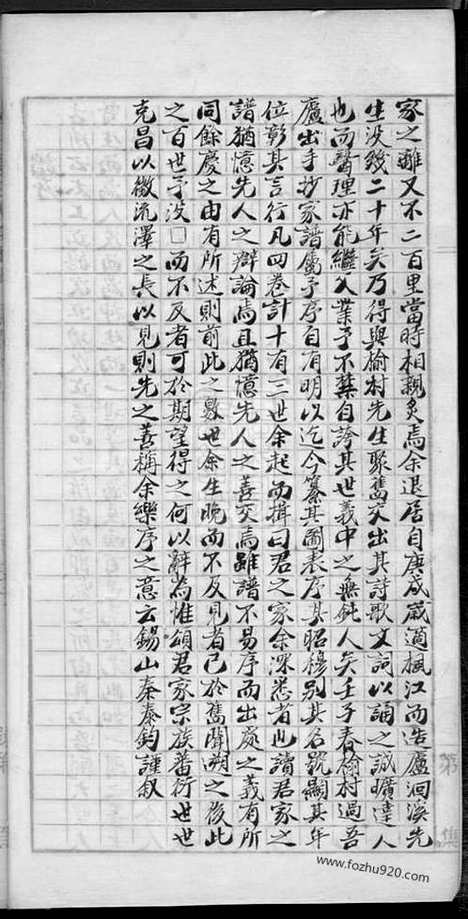 家之離又不二百里當時相親炙焉余退居自庚戌歲過楓江而造廬洄溪先
生没幾二十年矣乃得與榆村先生聚舊交出其詩歌文詞以誦之誠曠達人
也而醫理亦能繼父業予不禁自誇其世義中之無鈍人矣壬子春榆村過吾
廬出手抄家譜屬予序自有明以迄今纂其圖表序其昭穆别其名號顯其年
位彰其言行凡四卷計十有三世余起而揖曰君之家余深悉者也讀君家之
譜猶憶先人之辯論焉且猶憶先人之善交焉雖譜不易序而出處之義有所
同餘慶之由有所述則前此之數世余生晚而不及見者已於舊聞溯之後此
之百世予没□而不反者可於期望得之何以辭為惟頌君家宗族蕃衍世世
克昌以徵流澤之長以見則先之善稱余樂序之意云錫山秦泰鈞謹叙
www.fozhu920.com